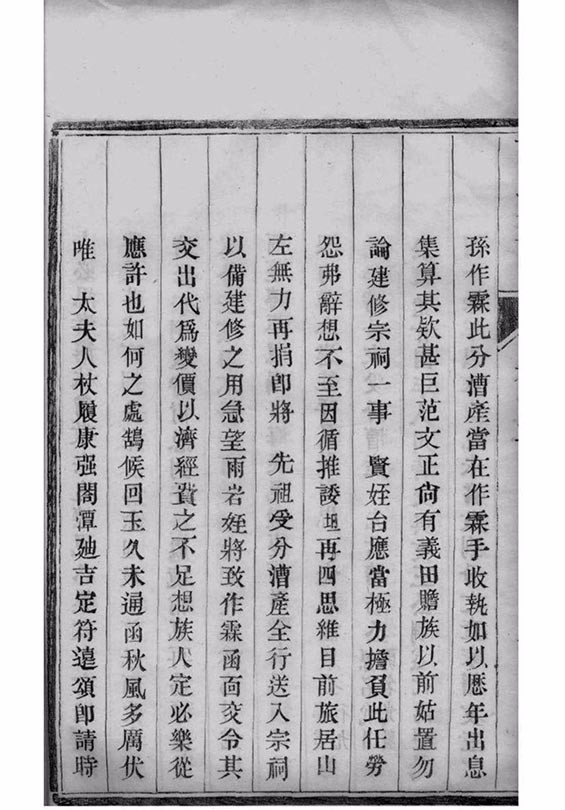 孫作霖此分漕產當在作霖手收執如以歷年出息
集算其欵甚巨范文正尙有義田贍族以前姑置勿
論建修宗祠一事 賢姪台應當極力擔負此任勞
怨弗辭想不至因循推諉垣再四思維目前旅居山
左無力再捐卽將 先祖受分漕產全行送入宗祠
以備建修之用急望雨岩姪將致作霖函面交令其
交出代爲變價以濟經費之不足想族人定必樂從
應許也如何之處鵠候回玉久未通函秋風多厲伏
唯 太夫人杖履康强閤潭廸吉定符遠頌卽請時